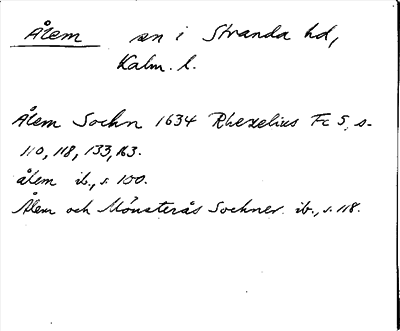 Ålem sn i Stranda hd,
Kalm. l.
Ålem Sochn 1634 Rhezelius Fc 5, s.
110, 118, 133, 163.
ålem ib., s. 100.
Ålem och Mönsterås Sochner ib., s. 118.